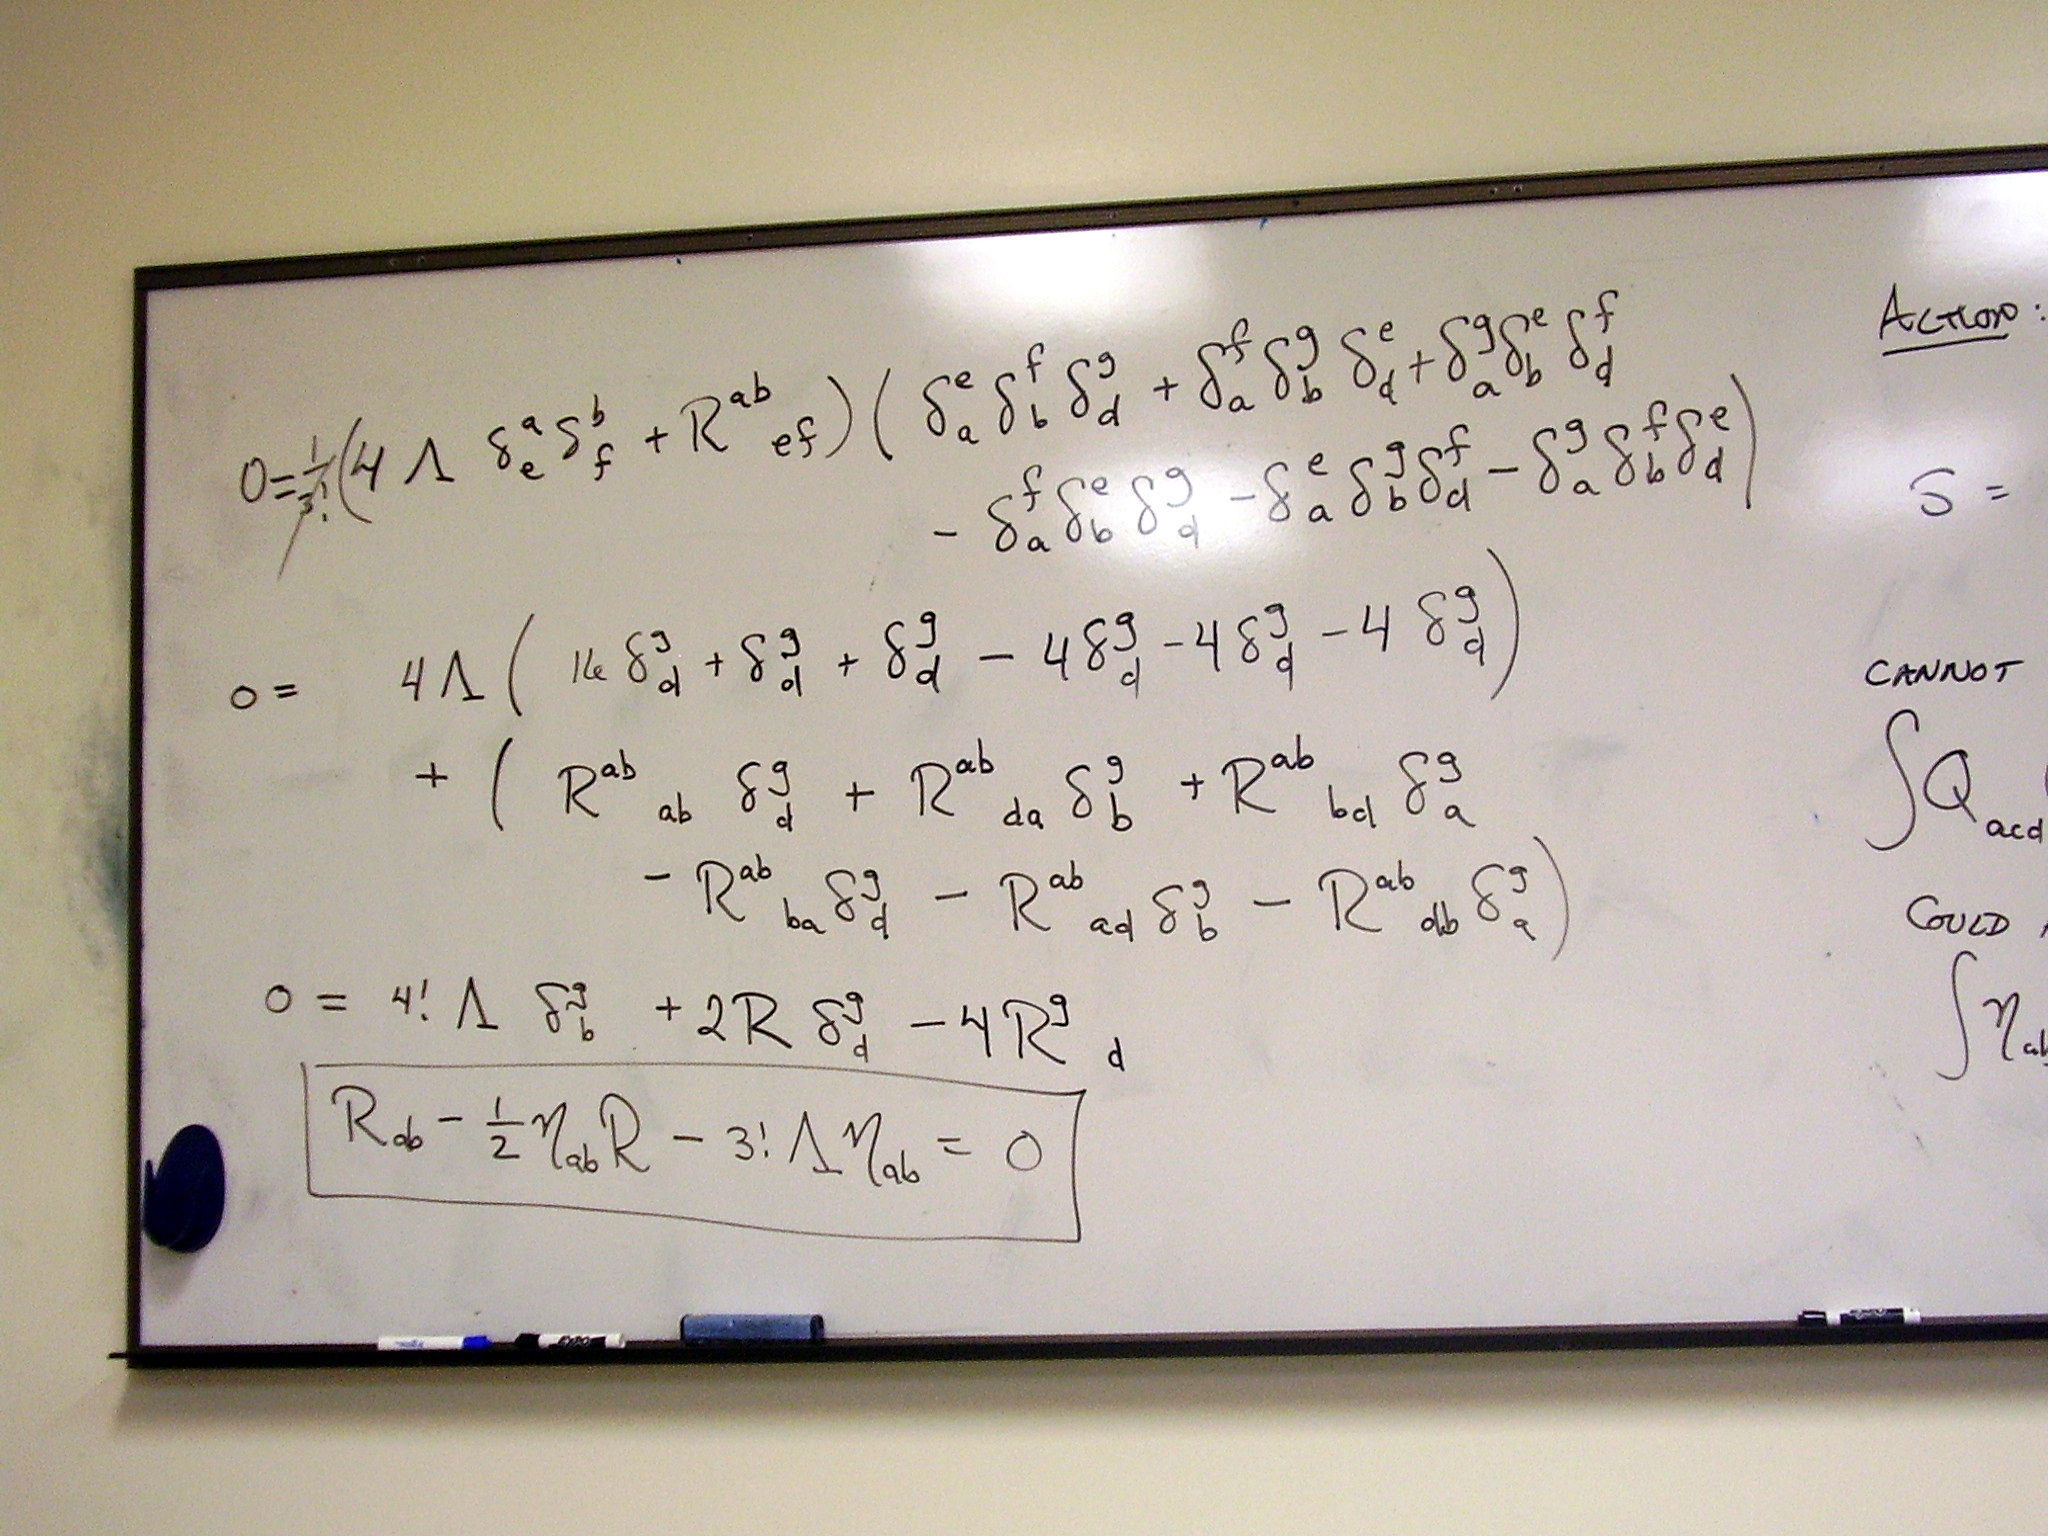 0 = 1/3! (4 Λ δ^a_e δ^b_f + R^{ab}_{ef}) ( δ^e_a δ^f_b δ^g_d + δ^f_a δ^g_b δ^e_d + δ^g_a δ^e_b δ^f_d
- δ^f_a δ^e_b δ^g_d - δ^e_a δ^g_b δ^f_d - δ^g_a δ^f_b δ^e_d )
0 = 4Λ ( 16 δ^g_d + δ^g_d + δ^g_d - 4δ^g_d - 4δ^g_d - 4 δ^g_d )
+ ( R^{ab}_{ab} δ^g_d + R^{ab}_{da} δ^g_b + R^{ab}_{bd} δ^g_a
- R^{ab}_{ba} δ^g_d - R^{ab}_{ad} δ^g_b - R^{ab}_{db} δ^g_a )
0 = 4! Λ δ^g_b + 2R δ^g_d - 4R^g_d
R_{ab} - 1/2 η_{ab} R - 3! Λ η_{ab} = 0
ACTION:
S =
CANNOT
∫ Q_{acd}
COULD
∫ η_{ab}
EXPO